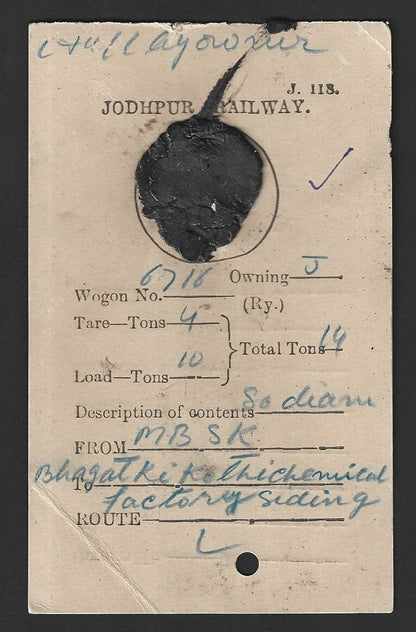 J. 118.
JODHPUR RAILWAY.
Wogon No. 6716 Owning J
(Ry.)
Tare—Tons 4
Total Tons 14
Load—Tons 10
Description of contents Sodiam
FROM MBSK
To Bhagat Ki Kothi chemical
factory siding
ROUTE